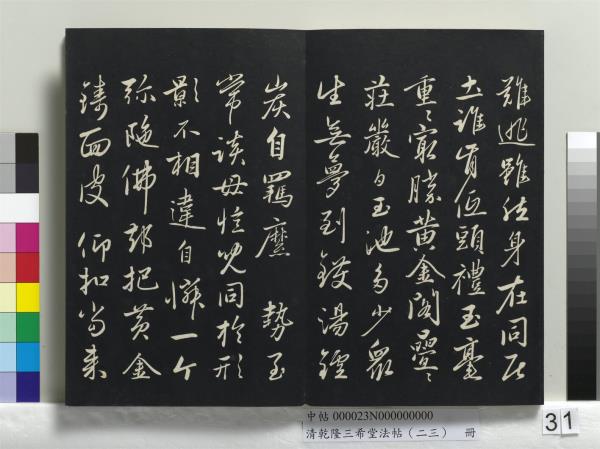 難逃雖然身在同居
土誰肯低頭禮玉毫
重〻最勝黃金閣疊〻
莊嚴白玉池多少眾
生無夢到鑊湯鑪
炭自羈縻 勢至
常談母憶兒同於形
影不相違自憐一个
弥陀佛却把黃金
鑄面皮 仰扣當來
中帖 000023N000000000
清乾隆三希堂法帖（二三） 冊
31